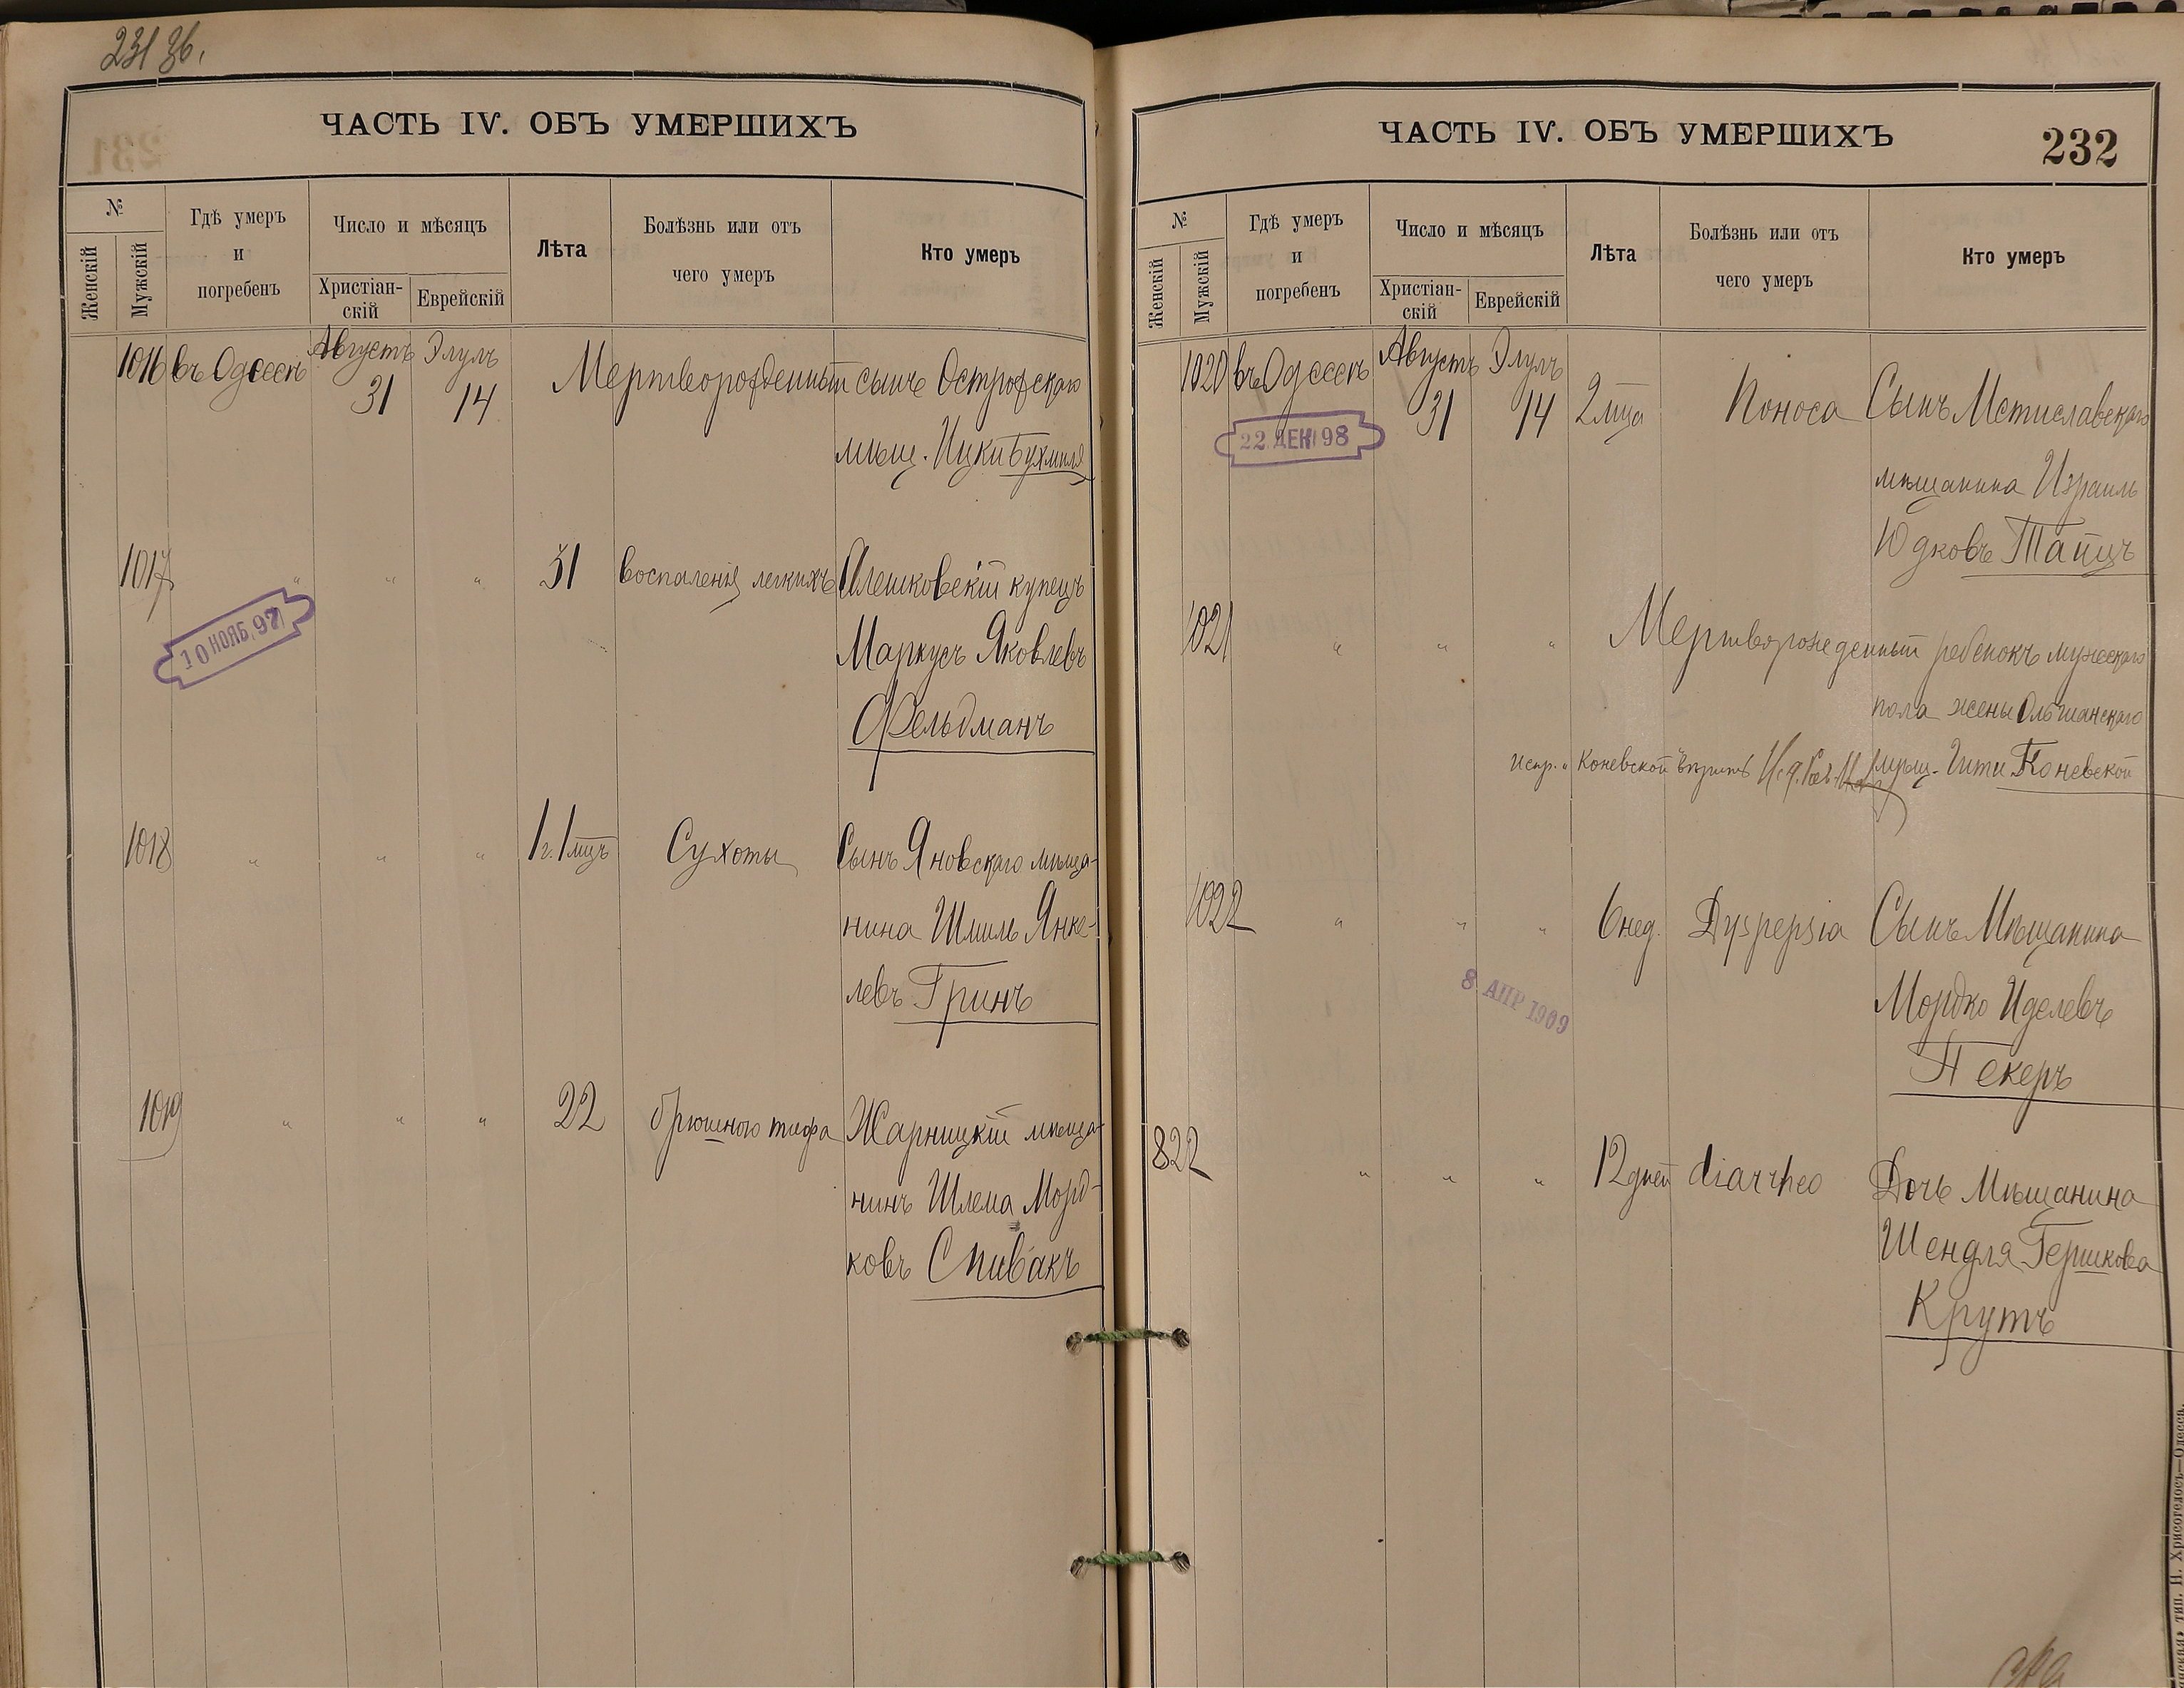 231 зб.
ЧАСТЬ IV. ОБЪ УМЕРШИХЪ
№
Женскій
Мужскій
Гдѣ умеръ
и
погребенъ
Число и мѣсяцъ
Христіан-
скій
Еврейскій
Лѣта
Болѣзнь или отъ
чего умеръ
Кто умеръ
1016 въ Одессѣ Августъ 31 Элулъ 14 Мертворожденный сынъ Острожскаго
мѣщ. Ицки Бухмиля
1017 " " " 31 воспаленія легкихъ Алешковскій купецъ
Маркусъ Яковлевъ
Фельдманъ
10 НОЯБ. 97
1018 " " " 1 г. 1 мцъ Сухоты Сынъ Яновскаго мѣща-
нина Шмиль Янке-
левъ Гринъ
1019 " " " 22 брюшного тифа Жарницкій мѣща-
нинъ Шлема Морд-
ковъ Спивакъ
ЧАСТЬ IV. ОБЪ УМЕРШИХЪ
232
№
Женскій
Мужскій
Гдѣ умеръ
и
погребенъ
Число и мѣсяцъ
Христіан-
скій
Еврейскій
Лѣта
Болѣзнь или отъ
чего умеръ
Кто умеръ
1020 въ Одессѣ Августъ 31 Элулъ 14 2 мца Поноса Сынъ Мстиславскаго
22 ДЕК 98
мѣщанина Израиль
Юдковъ Тайцъ
1021 " " " Мертворожденный ребенокъ мужескаго
пола жены Ольшанскаго
мѣщ. Гити Коневской
испр. "Коневской" вѣрить
1022 " " " 6 нед. Dyspepsia Сынъ Мѣщанина
Мордко Иделевъ
Пекеръ
8 АПР 1909
822 " " " 12 дней diarrheo Дочь Мѣщанина
Шендля Гершкова
Крутъ
тип. И. Хрисогелосъ—Одесса.